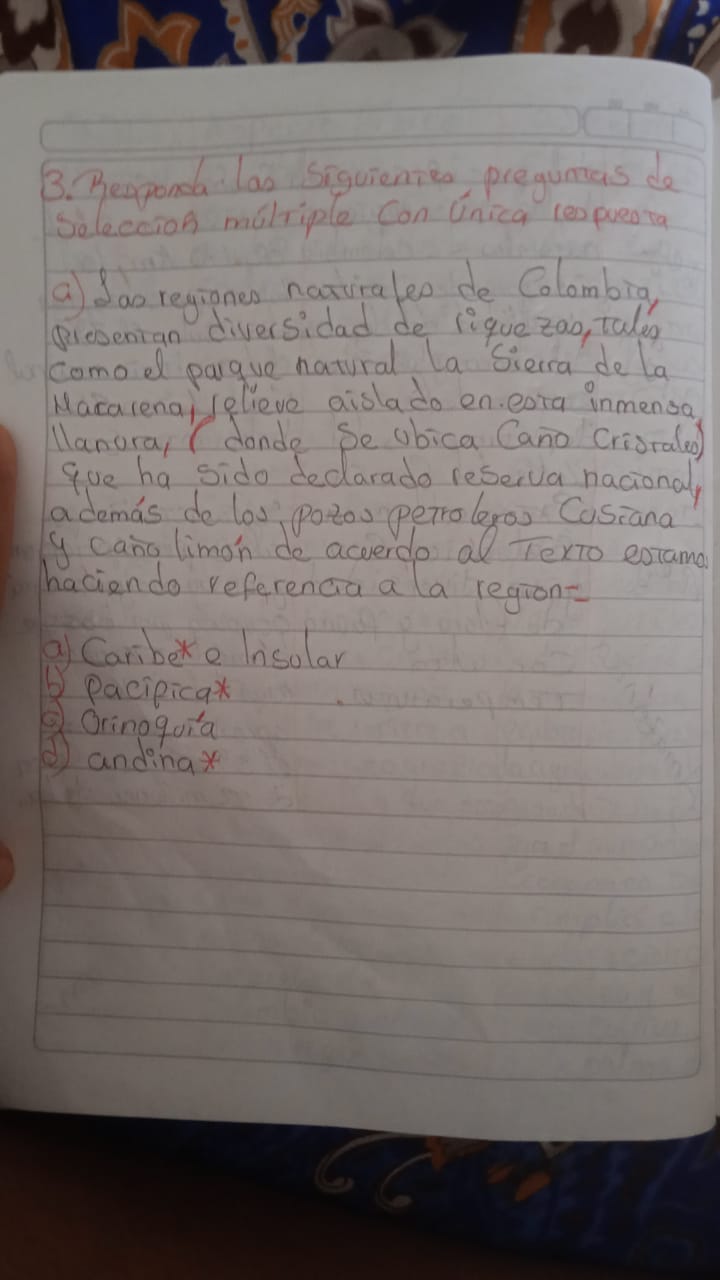 3. Responda las siguientes preguntas de
Selección múltriple Con Única respuesta
a) Las regiones naturales de Colombia,
presentan diversidad de riquezas, tales
como el parque natural la Sierra de la
Macarena, relieve aislado en esta inmensa
llanura, (donde se ubica Caño Cristales)
que ha sido declarado reserva nacional,
además de los pozos petroleros Cusiana
y caño limón de acuerdo al Texto estamos
haciendo referencia a la region=
a) Caribe* e Insolar
b) pacífica*
c) Orinoquía
d) andina*